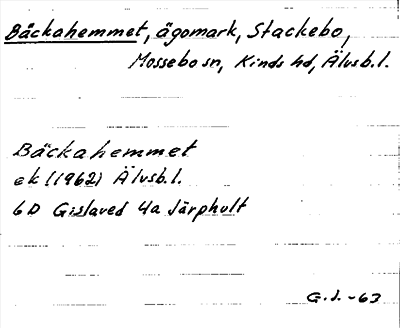 Bäckahemmet, ägomark, Stackebo,
Mossebo sn, Kinds hd, Älvsb.l.
Bäckahemmet
ek (1962) Älvsb.l.
6D Gislaved 4a Järphult
G.J. -63